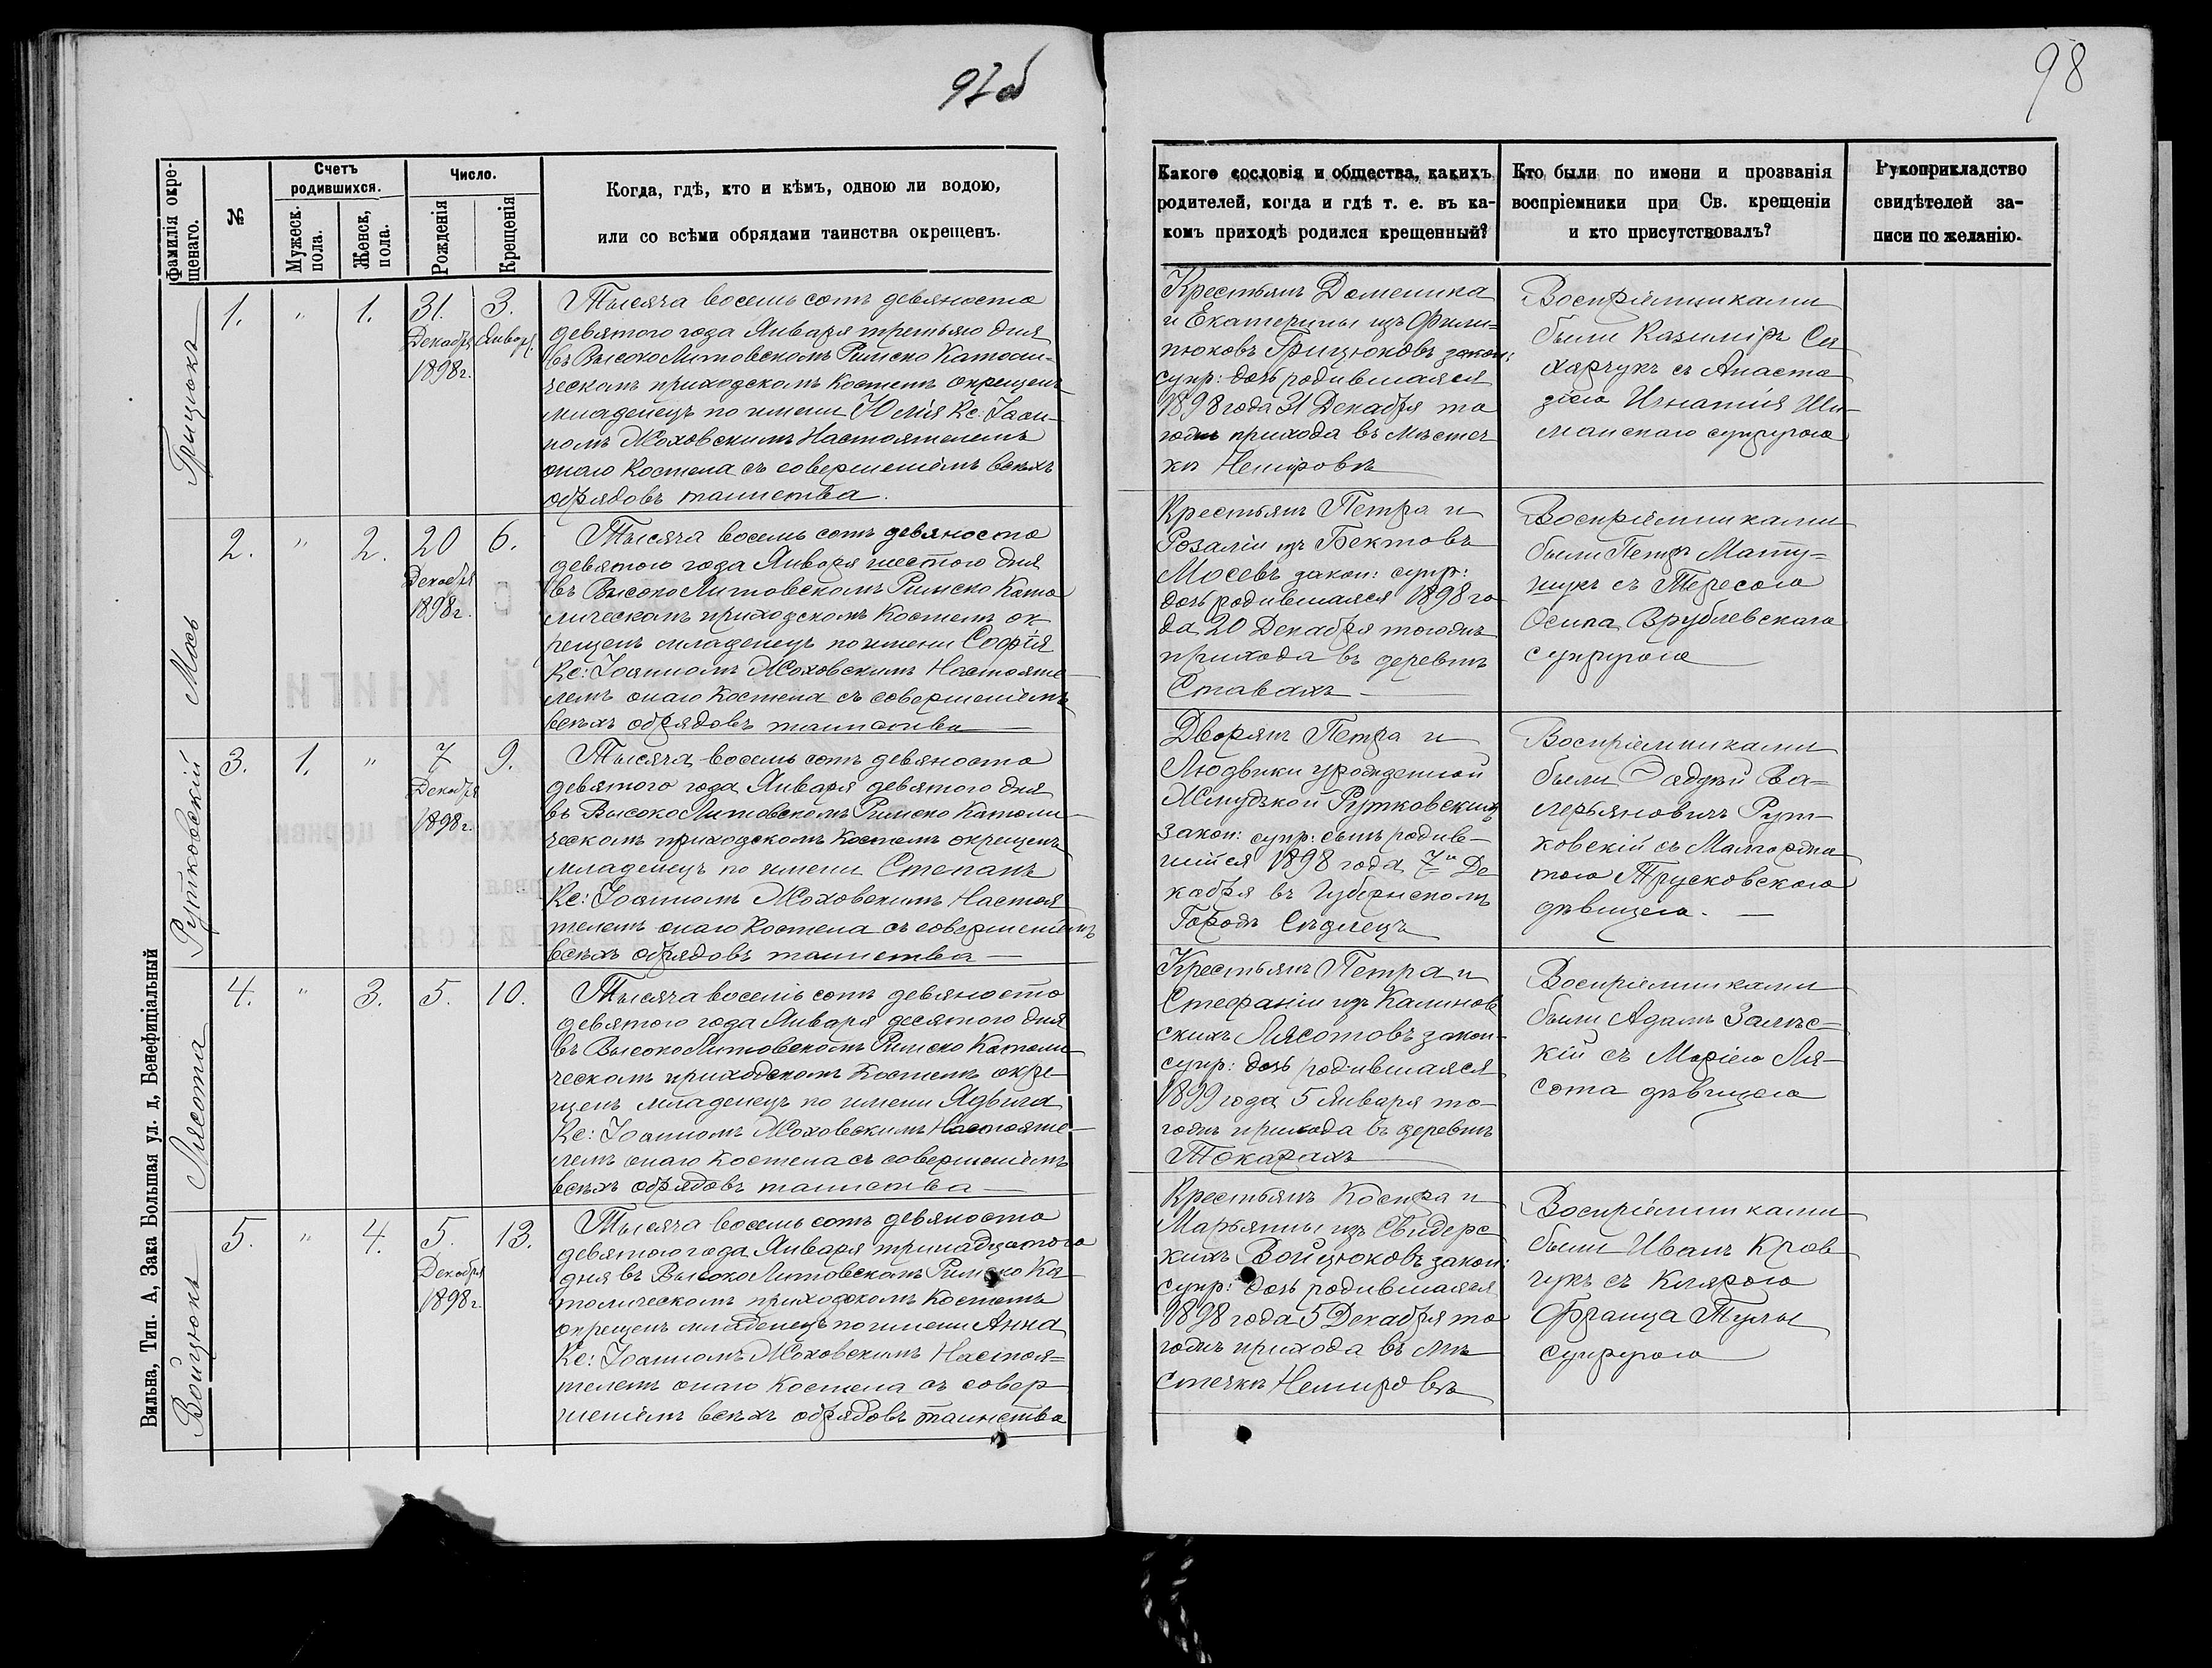 97об
98
Фамилія окре-
щенаго.
№
Счетъ
родившихся.
Мужеск.
пола.
Женск,
пола.
Число.
Рожденія
Крещенія
Когда, гдѣ, кто и кѣмъ, одною ли водою,
или со всѣми обрядами таинства окрещенъ.
Какого сословія и общества, какихъ
родителей, когда и гдѣ т. е. въ ка-
комъ приходѣ родился крещенный?
Кто были по имени и прозванія
воспріемники при Св. крещеніи
и кто присутствовалъ?
Рукоприкладство
свидѣтелей за-
писи по желанію.
Грицюкъ
1.
"
1.
31.
Декабря
1898 г.
3.
Января.
Тысяча восемь сотъ девяносто
девятого года Января третьяго дня
въ Высоко Литовскомъ Римско Католи-
ческомъ приходскомъ костелѣ окрещенъ
младенецъ по имени Юлія Кс: Іоан-
номъ Жоховскимъ Настоятелемъ
онаго Костела съ совершеніемъ всѣхъ
обрядовъ таинства.
Крестьянъ Доменика
и Екатерины изъ Фили=
пюковъ Грицюковъ закон:
супр: дочь родившаяся
1898 года 31 Декабря то
годнъ прихода въ мѣстеч
кѣ Немировѣ
Воспріемниками
были Казиміръ Са
харчукъ съ Анаста
зіею Игнатія Ши-
манскаго супругою
Мось
2.
"
2.
20
Декабря
1898 г.
6.
Тысяча восемь сотъ девяносто
девятого года Января шестого дня
въ Высоко Литовскомъ Римско Като
лическомъ приходскомъ Костелѣ ок-
рещенъ младенецъ по имени Софія
Кс: Іоанномъ Жоховскимъ Настояте-
лемъ онаго Костела съ совершеніемъ
всѣхъ обрядовъ таинства
Крестьянъ Петра и
Розаліи изъ Бектовъ
Мосевъ закон: супр:
дочь родившаяся 1898 го
да 20 Декабря тогоднъ
прихода въ деревнѣ
Ставахъ
Воспріемниками
были Петръ Мату=
шукъ съ Тересою
Осипа Врублевскаго
супругою
Рутковскій
3.
1.
"
7
Декабря
1898 г.
9.
Тысяча восемь сотъ девяносто
девятого года Января девятого дня
въ Высоко Литовскомъ Римско Католи-
ческомъ приходскомъ Костелѣ окрещенъ
младенецъ по имени Степанъ
Кс: Іоанномъ Жоховскимъ Настоя
телемъ онаго Костела съ совершеніемъ
всѣхъ обрядовъ таинства
Дворянъ Петра и
Людвики урожденной
Жмудзкой Рутковскихъ
закон: супр: сынъ родив-
шійся 1898 года 7го Де
кабря въ Губернскомъ
Городѣ Сѣдлецъ
Воспріемниками
были Фаддѣй Ва=
лерьяновичъ Рут-
ковскій съ Малгожа
тою Трусковскою
дѣвицею.
Лясота
4.
"
3.
5.
10.
Тысяча восемь сотъ девяносто
девятого года Января десятого дня
въ Высоко Литовскомъ Римско Католи-
ческомъ приходскомъ Костелѣ окре-
щенъ младенецъ по имени Ядвига
Кс: Іоанномъ Жоховскимъ Настояте-
лемъ онаго Костела съ совершеніемъ
всѣхъ обрядовъ таинства
Крестьянъ Петра и
Стефаніи изъ Калинов
скихъ Лясотовъ закон-
супр: дочь родившаяся
1899 года 5 Января то-
годнъ прихода въ деревнѣ
Токарахъ
Воспріемниками
были Адамъ Залѣс-
кій съ Маріею Ля-
сота дѣвицею
Войцюкъ
5.
"
4.
5.
Декабря
1898 г.
13.
Тысяча восемь сотъ девяносто
девятого года Января тринадцатого
дня въ Высоко Литовскомъ Римско Ка
толическомъ приходскомъ Костелѣ
окрещенъ младенецъ по имени Анна
Кс: Іоанномъ Жоховскимъ Настоя=
телемъ онаго Костела съ совер
шеніемъ всѣхъ обрядовъ таинства
Крестьянъ
Марьянны изъ Свидерс
кихъ Войцюковъ закон:
супр: дочь родившаяся
1898 года 5 Декабря то
годнъ прихода въ мѣ
стечкѣ Немировѣ
Воспріемниками
были Иванъ Крав
чукъ съ Клярою
Франца Тулы
супругою
Вильна, Тип. А, Зака Большая ул. д, Бенефиціальный